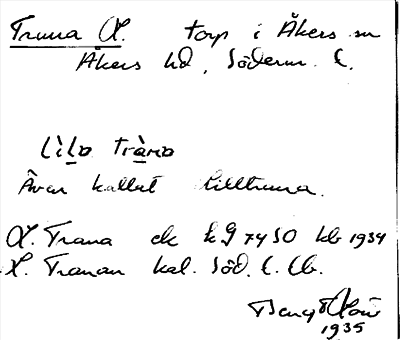 Trana L. torp i Åkers sn
Åkers hd, Söderm. l.
Lìla tràna
Även kallat Lilltrana.
L. Trana ek kg 7450 hb 1934
L. Tranan kal. Söd. l. lb.
Bengt
1935